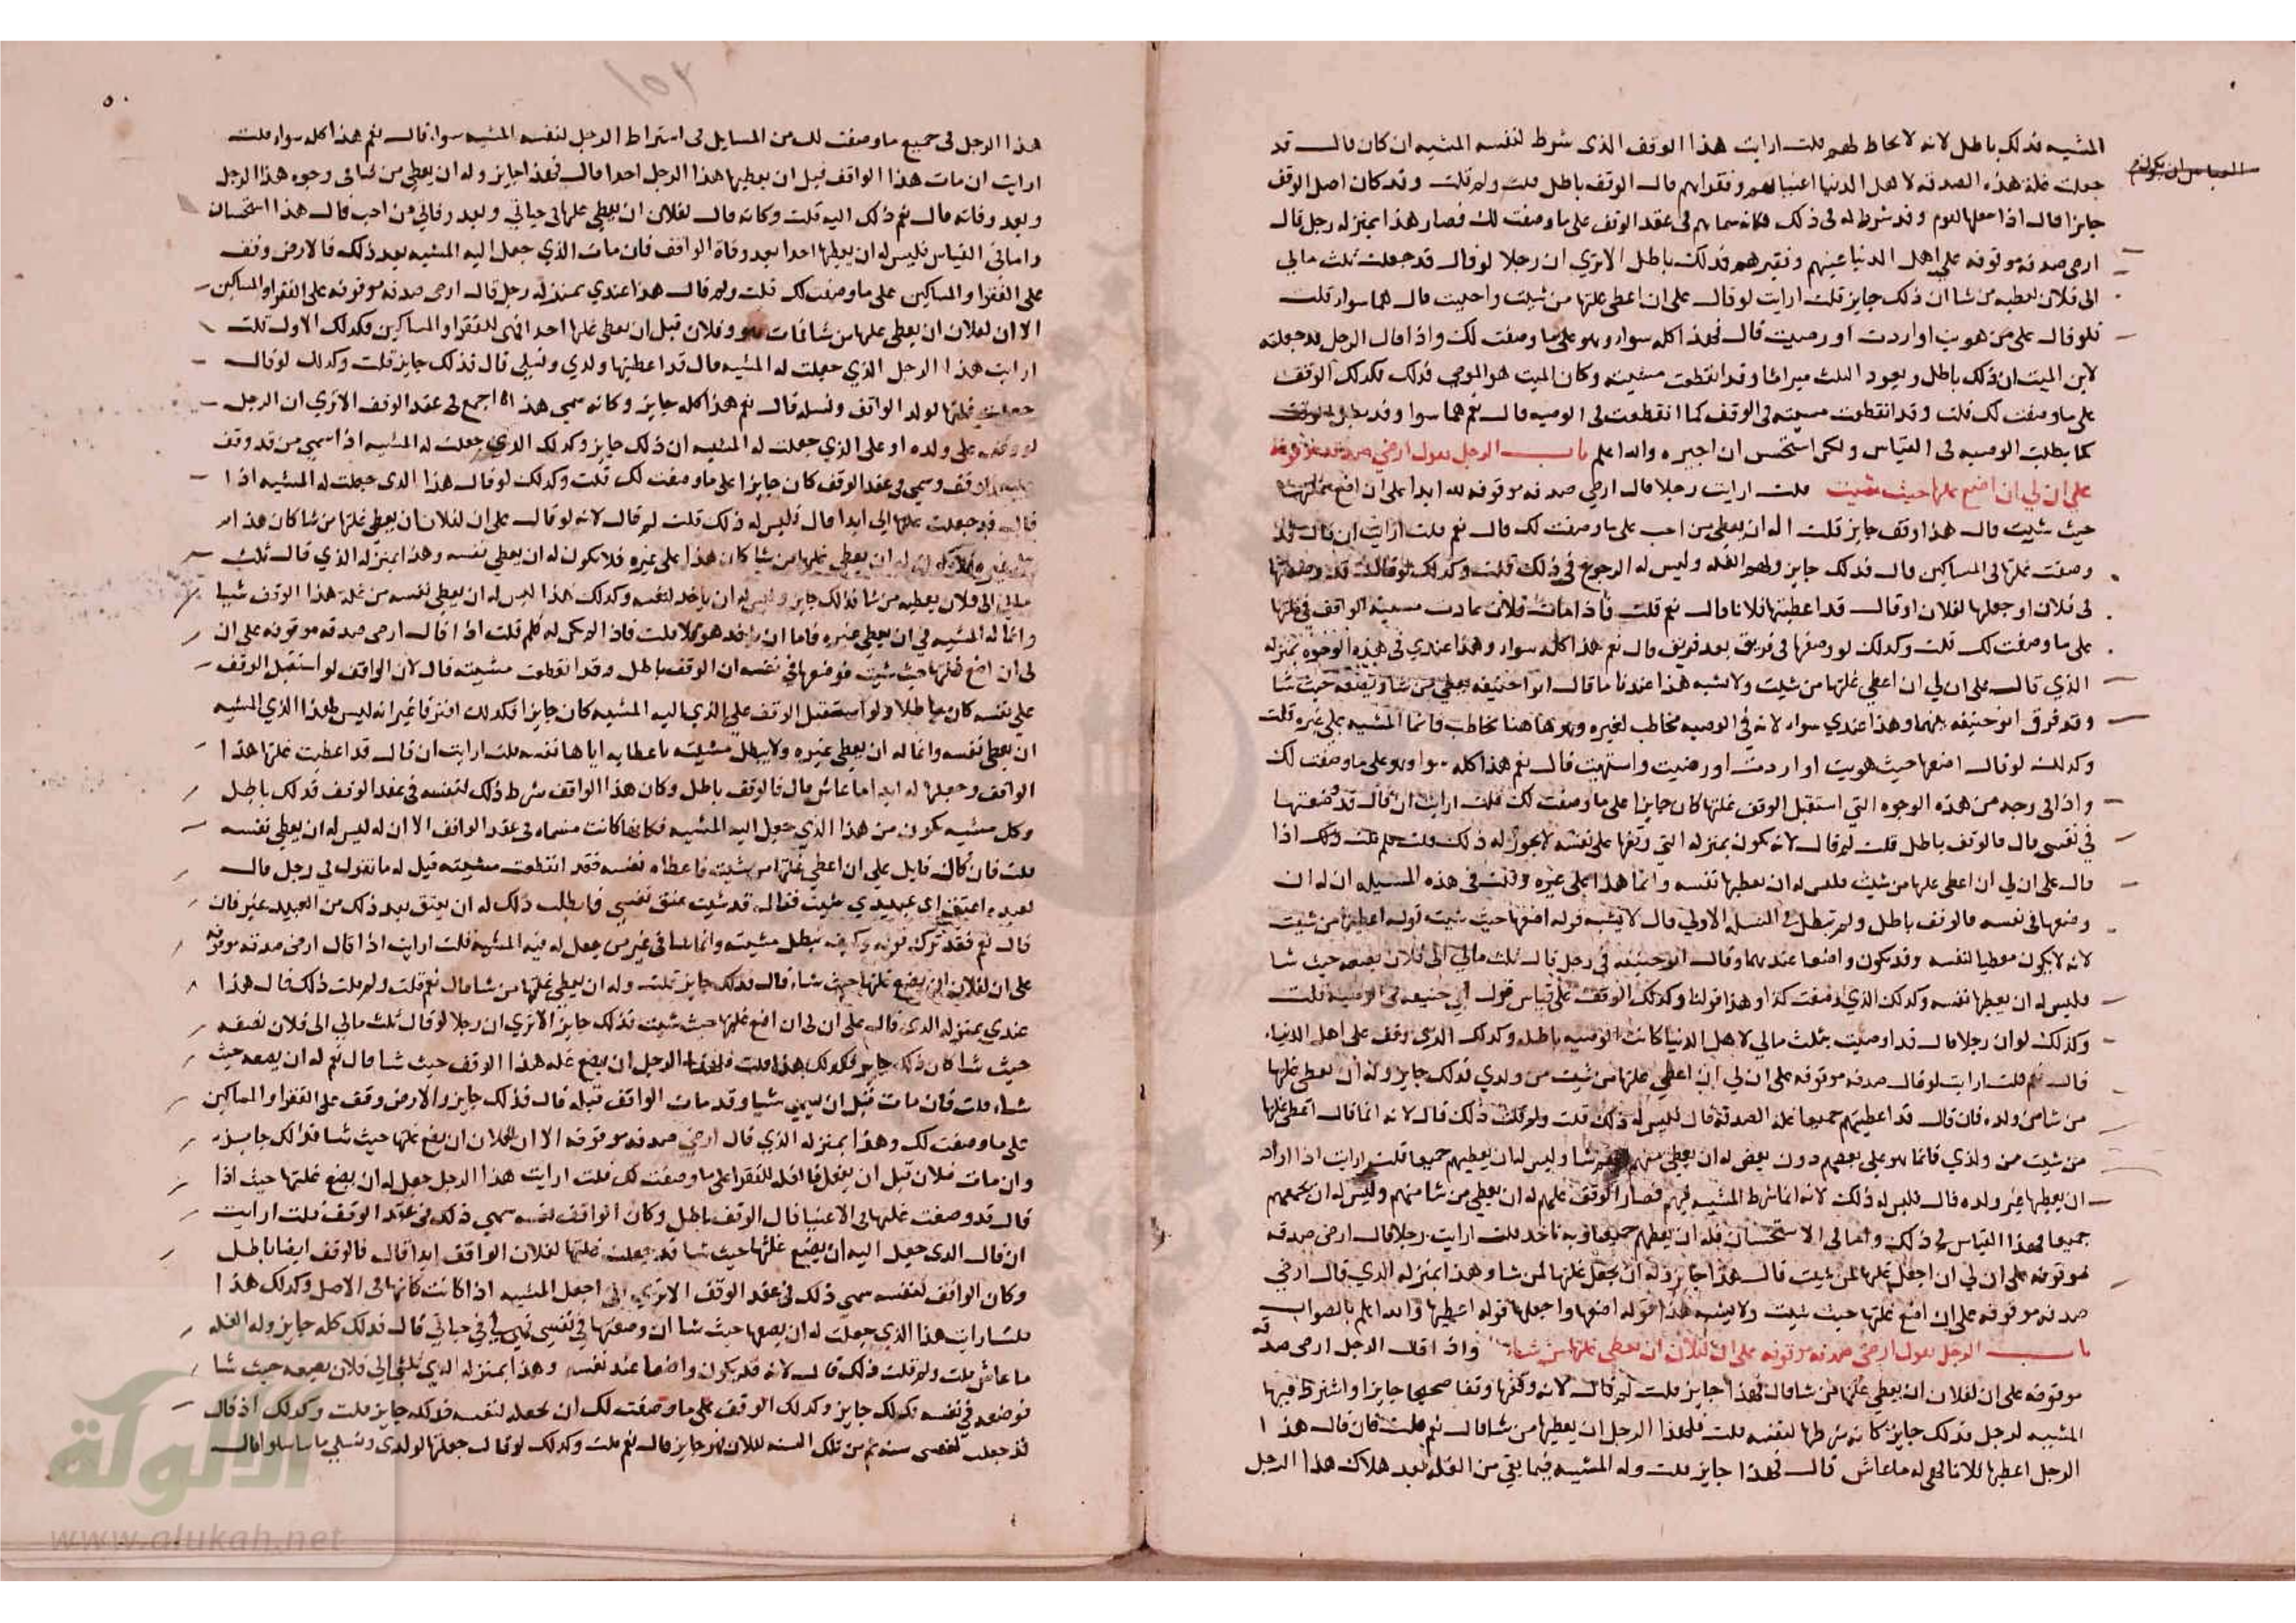 المشيه فذلك باطل لانه لا يحاط لهم قلت ارايت هذا الوقف الذى شرط لنفسه المشيه ان كان قال قد
جعلت غلة هذه الصدقه لاهل الدنيا اغنيايهم وفقرايهم قال الوقف باطل قلت ولم قلت وقد كان اصل الوقف
جايزا قال اذا جعلها لقوم وقد شرط له فى ذلك فكانه سماهم فى عقد الوقف على ما وصفت لك فصار هذا بمنزله رجل قال
ارضى صدقه موقوفه على اهل الدنيا غنيهم وفقيرهم فذلك باطل الا ترى ان رجلا لو قال قد جعلت ثلث مالى
الى فلان يعطيه من شا ان ذلك جايز قلت ارايت لو قال على ان اعطى غلتها من شيت واحببت قال هما سوا قلت
فلو قال على من هويت او اردت او رضيت قال فهذا كله سوا وهو على ما وصفت لك واذا قال الرجل قد جعلته
لابن الميت ان ذلك باطل ويعود الثلث ميراثا وقد انقطعت مشيته وكان الميت هو الموصى فذلك فكذلك الوقف
على ما وصفت لك قلت وقد انقطعت مشيته فى الوقف كما انقطعت فى الوصيه قال نعم هما سوا وقد يبطل الوقف
كما بطلت الوصيه فى القياس ولكن استحسن ان اجيزه والله اعلم باب الرجل يقول ارضى صدقه موقوفه
على ان لى ان اضع غلتها حيث شيت قلت ارايت رجلا قال ارضى صدقه موقوفه لله ابدا على ان اضع غلتها
حيث شيت قال هذا وقف جايز قلت اله ان يعطى من احب على ما وصفت لك قال نعم قلت ارايت ان قال قد
وضعت غلتها فى المساكين قال فذلك جايز ولهم الغله وليس له الرجوع فى ذلك قلت وكذلك لو قال قد وضعتها
فى فلان او جعلها لفلان او قال قد اعطيتها فلانا قال نعم قلت فاذا مات فلان عادت مشية الواقف فى غلتها
على ما وصفت لك قلت وكذلك لو وضعها فى فريق بعد فريق قال نعم هذا كله سوا وهذا عندى فى هذه الوجوه بمنزله
الذى قال على ان لى ان اعطى غلتها من شيت ولا يشبه هذا عندنا ما قال ابو حنيفه يعطى من شا ويضعه حيث شا
وقد فرق ابو حنيفه بينهما وهذا عندى سوا لانه فى الوصيه مخاطب لغيره وهو هاهنا مخاطب فانما المشيه على غيره قلت
وكذلك لو قال اضعها حيث هويت او اردت او رضيت واشتهيت قال نعم هذا كله سوا وهو على ما وصفت لك
واذا فى وجه من هذه الوجوه التى استقبل الوقف غلتها كان جايزا على ما وصفت لك قلت ارايت ان قال قد وضعتها
فى نفسى قال فالوقف باطل قلت لم قال لانه يكون بمنزله التى وقفها على نفسه لا يجوز له ذلك قلت فلم قلت ولك اذا
قال على ان لى ان اعطى غلتها من شيت فليس له ان يعطيها نفسه وانما هذا على غيره وقلت فى هذه المسيله ان له ان
وضعها فى نفسه فالوقف باطل ولم تبطل فى المسله الاولى قال لا يشبه قوله اضعها حيث شيت قوله اعطيها من شيت
لانه لا يكون معطيا لنفسه وقد يكون واضعا عندهما وقال ابو حنيفه فى رجل قال ثلث مالى الى فلان يضعه حيث شا
فليس له ان يعطيها نفسه وكذلك الذى وصفت كذا وهذا قولنا وكذلك الوقف على قياس قول ابى حنيفه فى الوصيه قلت
وكذلك لو ان رجلا قال قد اوصيت بثلث مالى لاهل الدنيا كانت الوصيه باطله وكذلك الذى وقف على اهل الدنيا
قال نعم قلت ارايت لو قال صدقه موقوفه على ان لى ان اعطى غلتها من شيت من ولدى فذلك جايز وله ان يعطى غلتها
من شا من ولده فان قال قد اعطيتهم جميعا غلة الصدقه قال فليس له ذلك قلت ولم قلت ذلك قال لانه انما قال اعطى غلتها
من شيت من ولدى فانما هو على بعضهم دون بعض له ان يعطى منهم من شا وليس له ان يعطيهم جميعا قلت ارايت اذا اراد
ان يعطيها غير ولده قال فليس له ذلك لانه انما شرط المشيه فيهم فصار الوقف عليهم له ان يعطى من شا منهم وليس له ان يجمعهم
جميعا فهذا القياس فى ذلك واما فى الاستحسان فله ان يعطيهم جميعا وبه ناخد قلت ارايت رجلا قال ارضى صدقه
موقوفه على ان لى ان اجعل غلتها لمن شيت قال هذا جايز وله ان يجعل غلتها لمن شا وهذا بمنزله الذى قال ارضى
صدقه موقوفه على ان اضع غلتها حيث شيت ولا يشبه هذا قوله اضعها واجعلها قوله اعطيها والله اعلم بالصواب
باب الرجل يقول ارضى صدقه موقوفه على ان لفلان ان يعطى غلتها من شا واذا قال الرجل ارضى صدقه
موقوفه على ان لفلان ان يعطى غلتها من شا قال فهذا جايز قلت لم قال لانه وقفها وقفا صحيحا جايزا واشترط فيها
المشيه لرجل فذلك جايز كانه شرطها لنفسه قلت فلهذا الرجل ان يعطيها من شا قال نعم قلت فان قال هذا
الرجل اعطيها فلانا فهى له ما عاش قال فهذا جايز قلت وله المشيه فيما بقى من الغله بعد هلاك هذا الرجل
هذا الرجل فى جميع ما وصفت لك من المسايل فى اشتراط الرجل لنفسه المشيه سوا قال نعم هذا كله سوا قلت
ارايت ان مات هذا الواقف قبل ان يعطيها هذا الرجل احدا قال فهذا جايز وله ان يعطى من شا فى وجوه هذا الرجل
وبعد وفاته قال نعم ذلك اليه قلت وكانه قال لفلان ان يعطى غلتها فى حياتى وبعد وفاتى من احب قال هذا استحسان
واما فى القياس فليس له ان يعطيها احدا بعد وفاة الواقف فان مات الذى جعل اليه المشيه بعد ذلك فالارض وقف
على الفقرا والمساكين على ما وصفت لك قلت ولم قال هذا عندى بمنزله رجل قال ارضى صدقه موقوفه على الفقرا والمساكين
الا ان لفلان ان يعطى غلتها من شا فمات هو وفلان قبل ان يعطى غلتها احدا فهى للفقرا والمساكين فكذلك الاول قلت
ارايت هذا الرجل الذى جعلت له المشيه قال قد اعطيتها ولدى ونسلى قال فذلك جايز قلت وكذلك لو قال
جعلت غلتها لولد الواقف ونسله قال نعم هذا كله جايز وكانه سمى هذا اجمع فى عقد الوقف الا ترى ان الرجل
لو وقف على ولده او على الذى جعلت له المشيه ان ذلك جايز وكذلك الذى جعلت له المشيه اذا سمى من قد وقف
عليه الوقف وسمى فى عقد الوقف كان جايزا على ما وصفت لك قلت وكذلك لو قال هذا الذى جعلت له المشيه اذا
قال قد جعلت غلتها لى ابدا قال فليس له ذلك قلت لم قال لانه لو قال على ان لفلان ان يعطى غلتها من شا كان هذا
ان يعطى غلتها من شا كان هذا على غيره فلا يكون له ان يعطى نفسه وهذا بمنزله الذى قال ثلث
مالى الى فلان يعطيه من شا فذلك جايز وليس له ان ياخذ لنفسه وكذلك هذا ليس له ان يعطى نفسه من غلة هذا الوقف شيا
وانما له المشيه فى ان يعطى غيره فاما ان ياخذ هو فلا قلت فاذا لم يكن له فلم قلت اذا قال ارضى صدقه موقوفه على ان
لى ان اضع غلتها حيث شيت فوضعها فى نفسه ان الوقف باطل وقد انقطعت مشيته قال لان الواقف لو استقبل الوقف
على نفسه كان باطلا ولو استقبل الوقف على الذى اليه المشيه كان جايزا فكذلك افترقا غير انه ليس لهذا الذى المشيه
ان يعطى نفسه وانما له ان يعطى غيره ولا يبطل مشيته باعطايه اياها نفسه قلت ارايت ان قال قد اعطيت غلتها هذا
الواقف وجعلها له ابدا ما عاش قال فالوقف باطل وكان هذا الواقف شرط ذلك لنفسه فى عقد الوقف فذلك باطل
وكل مشيه تكون من هذا الذى جعل اليه المشيه فكانها كانت مسماه فى عقد الواقف الا ان له ليس له ان يعطى نفسه
قلت فان قال قايل على ان اعطى غلتها من شيت فاعطاه نفسه فقد انقطعت مشيته قيل له ما تقول فى رجل قال
لعبده اعتق اى عبيدى شيت فقال قد شيت عتق نفسى فابطلت ذلك له ان يعتق بعد ذلك من العبيد غيره فان
قال نعم فقد ترك قوله وكيف تبطل مشيته وانما شا فى غير من جعل له فيه المشيه قلت ارايت اذا قال ارضى صدقه موقوفه
على ان لفلان ان يضع غلتها حيث شا قال فذلك جايز قلت وله ان يعطى غلتها من شا قال نعم قلت ولم قلت ذلك قال هذا
عندى بمنزله الذى قال على ان لى ان اضع غلتها حيث شيت فذلك جايز الا ترى ان رجلا لو قال ثلث مالى الى فلان يضعه
حيث شا كان ذلك جايز فكذلك هذا قلت فلهذا الرجل ان يضع غلة هذا الوقف حيث شا قال نعم له ان يضعه حيث
شا قلت فان مات قبل ان يسمى شيا وقد مات الواقف قبله قال فذلك جايز والارض وقف على الفقرا والمساكين
على ما وصفت لك وهذا بمنزله الذى قال ارضى صدقه موقوفه الا ان لفلان ان يضع غلتها حيث شا فذلك جايز
وان مات فلان قبل ان يفعل فالغله للفقرا على ما وصفت لك قلت ارايت هذا الرجل جعل له ان يضع غلتها حيث اذا
قال قد وضعت غلتها فى الاغنيا قال الوقف باطل وكان الواقف نفسه سمى ذلك فى عقد الوقف قلت ارايت
ان قال الذى جعل اليه ان يضع غلتها حيث شا قد جعلت غلتها لفلان الواقف ابدا قال فالوقف ايضا باطل
وكان الواقف لنفسه سمى ذلك فى عقد الوقف الا ترى انى اجعل المشيه اذا كانت كانها فى الاصل وكذلك هذا
قلت ارايت هذا الذى جعلت له ان يضعها حيث شا ان وضعتها فى نفسى فهى لى فى حياتى قال فذلك كله جايز وله الغله
ما عاش قلت ولم قلت ذلك قال لانه قد يكون واضعا عند نفسه وهذا بمنزله الذى ثلثى الى فلان يضعه حيث شا
فوضعه فى نفسه فذلك جايز وكذلك الوقف على ما وصفت لك ان يجعله لنفسه فذلك جايز قلت وكذلك اذ قال
قد جعلت لنفسى سنه ثم من تلك السنه لفلان فهو جايز قال نعم قلت وكذلك لو قال جعلتها لولدى ونسلى